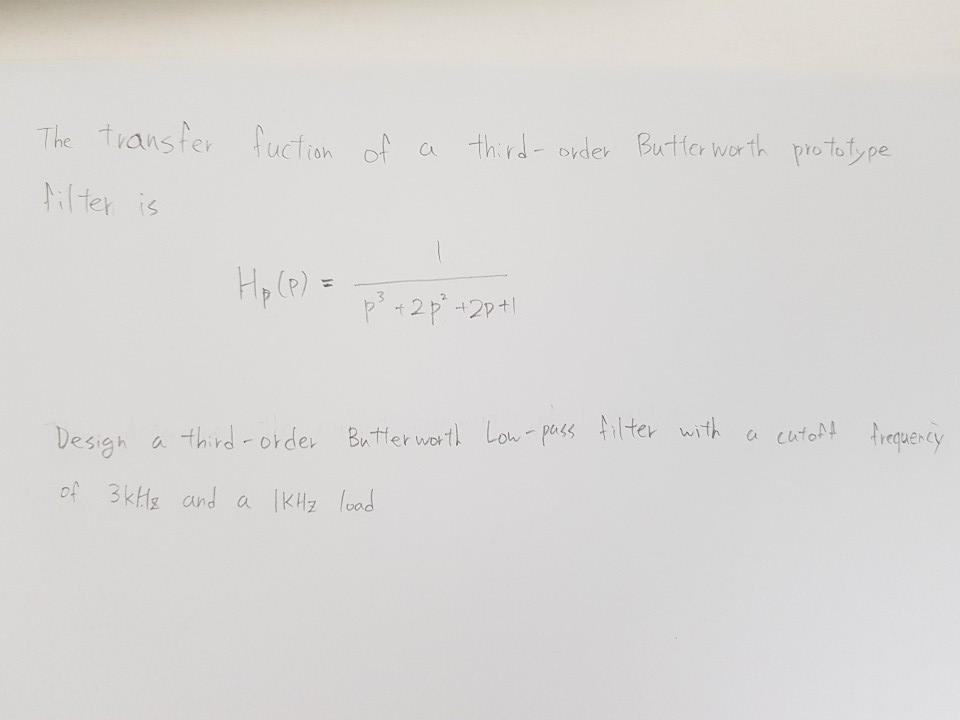 The transfer fuction of a third-order Butterworth prototype
filter is
Hp(p) = 1 / (p³ + 2p² + 2p + 1)
Design a third-order Butterworth Low-pass filter with a cutoff frequency
of 3kHz and a 1KHz load